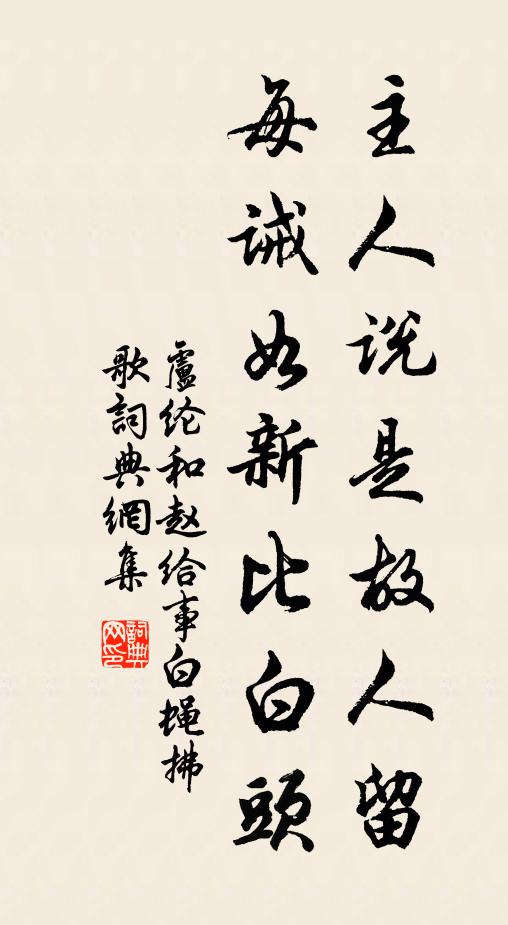 主人说是故人留
每诫如新比白頭
盧纶和赵给事白蝇拂
歌詞典網集
詞典网印